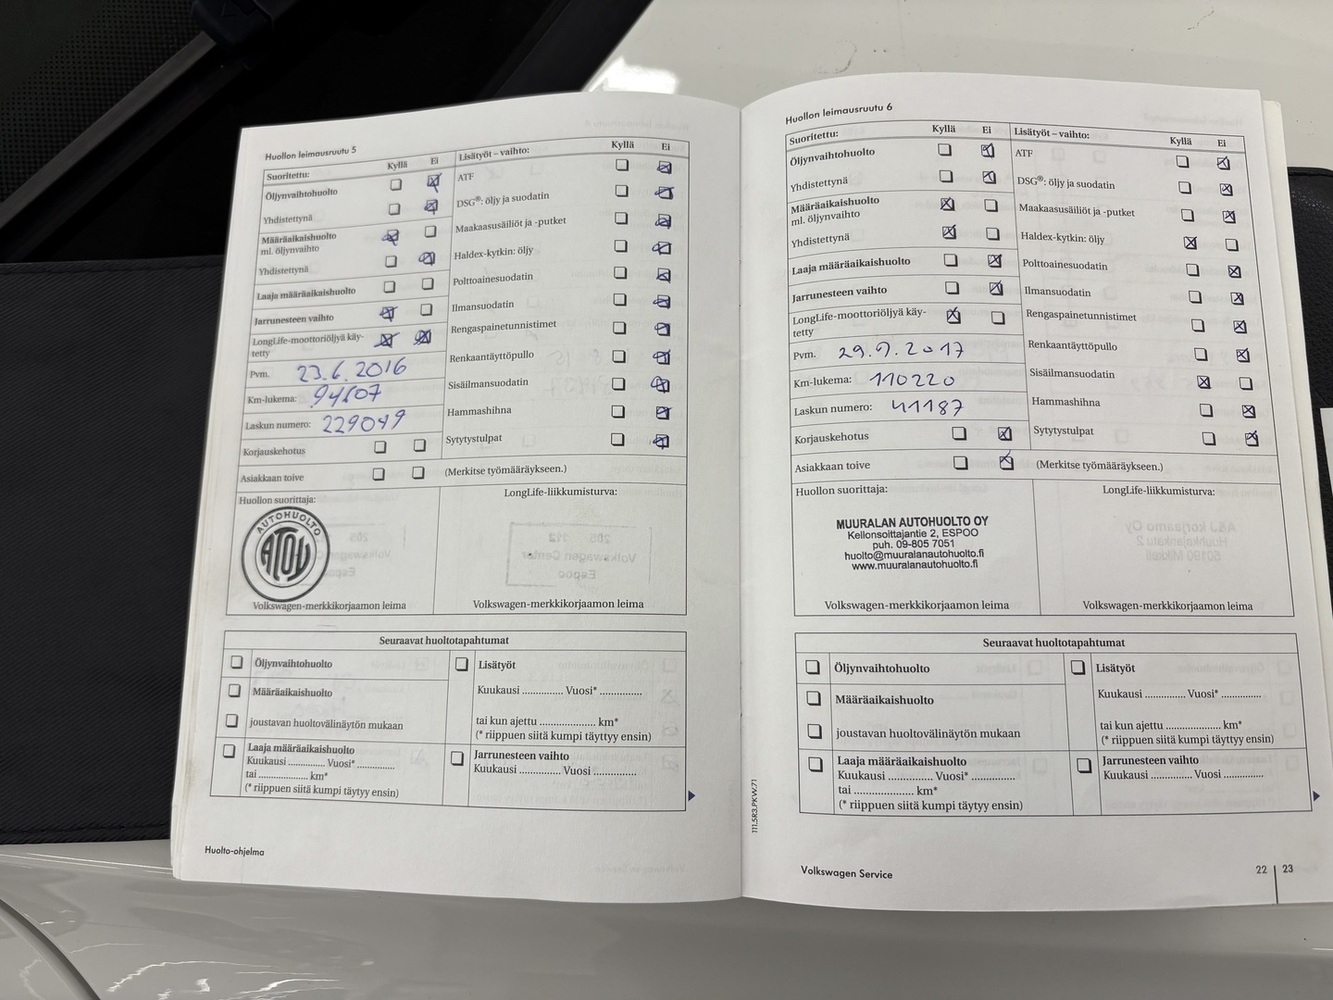 Huollon leimausruutu 5
Suoritettu: Kyllä Ei
Öljynvaihtohuolto
Yhdistettynä
Määräaikaishuolto
ml. öljynvaihto
Yhdistettynä
Laaja määräaikaishuolto
Jarrunesteen vaihto
LongLife-moottoriöljyä käy-
tetty
Pvm. 23.6.2016
Km-lukema: 94607
Laskun numero: 229049
Korjauskehotus
Asiakkaan toive
Lisätyöt – vaihto: Kyllä Ei
ATF
DSG®: öljy ja suodatin
Maakaasusäiliöt ja -putket
Haldex-kytkin: öljy
Polttoainesuodatin
Ilmansuodatin
Rengaspainetunnistimet
Renkaantäyttöpullo
Sisäilmansuodatin
Hammashihna
Sytytystulpat
(Merkitse työmääräykseen.)
Huollon suorittaja:
AUTOHUOLTO
ATOY
Volkswagen-merkkikorjaamon leima
LongLife-liikkumisturva:
Volkswagen-merkkikorjaamon leima
Seuraavat huoltotapahtumat
Öljynvaihtohuolto
Määräaikaishuolto
joustavan huoltovälinäytön mukaan
Laaja määräaikaishuolto
Kuukausi .............. Vuosi* ..............
tai .................... km*
(* riippuen siitä kumpi täytyy ensin)
Lisätyöt
Kuukausi .............. Vuosi* ..............
tai kun ajettu .................... km*
(* riippuen siitä kumpi täyttyy ensin)
Jarrunesteen vaihto
Kuukausi .............. Vuosi ..............
Huolto-ohjelma
Huollon leimausruutu 6
Suoritettu: Kyllä Ei
Öljynvaihtohuolto
Yhdistettynä
Määräaikaishuolto
ml. öljynvaihto
Yhdistettynä
Laaja määräaikaishuolto
Jarrunesteen vaihto
LongLife-moottoriöljyä käy-
tetty
Pvm. 29.9.2017
Km-lukema: 110220
Laskun numero: 41187
Korjauskehotus
Asiakkaan toive
Lisätyöt – vaihto: Kyllä Ei
ATF
DSG®: öljy ja suodatin
Maakaasusäiliöt ja -putket
Haldex-kytkin: öljy
Polttoainesuodatin
Ilmansuodatin
Rengaspainetunnistimet
Renkaantäyttöpullo
Sisäilmansuodatin
Hammashihna
Sytytystulpat
(Merkitse työmääräykseen.)
Huollon suorittaja:
MUURALAN AUTOHUOLTO OY
Kellonsoittajantie 2, ESPOO
puh. 09-805 7051
huolto@muuralanautohuolto.fi
www.muuralanautohuolto.fi
Volkswagen-merkkikorjaamon leima
LongLife-liikkumisturva:
Volkswagen-merkkikorjaamon leima
Seuraavat huoltotapahtumat
Öljynvaihtohuolto
Määräaikaishuolto
joustavan huoltovälinäytön mukaan
Laaja määräaikaishuolto
Kuukausi .............. Vuosi* ..............
tai .................... km*
(* riippuen siitä kumpi täytyy ensin)
Lisätyöt
Kuukausi .............. Vuosi* ..............
tai kun ajettu .................... km*
(* riippuen siitä kumpi täyttyy ensin)
Jarrunesteen vaihto
Kuukausi .............. Vuosi ..............
111.5R3.PKW.71
Volkswagen Service
22 | 23